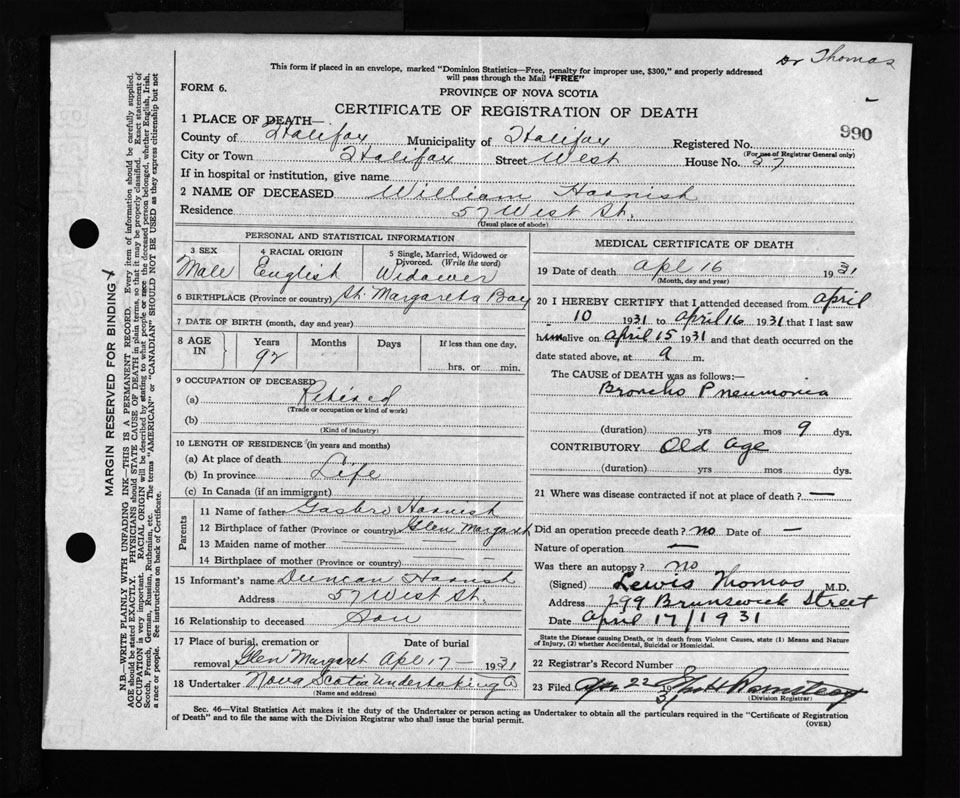 Dr Thomas
This form if placed in an envelope, marked "Dominion Statistics—Free, penalty for improper use, $300," and properly addressed
will pass through the Mail "FREE"
FORM 6.
PROVINCE OF NOVA SCOTIA
CERTIFICATE OF REGISTRATION OF DEATH
990
1 PLACE OF DEATH—
County of Halifax Municipality of Halifax Registered No.
(For use of Registrar General only)
City or Town Halifax Street West House No. 57
If in hospital or institution, give name
2 NAME OF DECEASED William Harnish
Residence 57 West St.
(Usual place of abode)
PERSONAL AND STATISTICAL INFORMATION
3 SEX 4 RACIAL ORIGIN 5 Single, Married, Widowed or
Divorced. (Write the word)
Male English Widower
6 BIRTHPLACE (Province or country) St. Margarets Bay
7 DATE OF BIRTH (month, day and year)
8 AGE IN Years Months Days If less than one day,
92 hrs. or min.
9 OCCUPATION OF DECEASED
(a) Retired
(Trade or occupation or kind of work)
(b)
(Kind of industry)
10 LENGTH OF RESIDENCE (in years and months)
(a) At place of death
(b) In province Life
(c) In Canada (if an immigrant)
Parents
11 Name of father Harnish
12 Birthplace of father (Province or country) Glen Margaret
13 Maiden name of mother
14 Birthplace of mother
15 Informant's name Duncan Harnish
Address 57 West St.
16 Relationship to deceased Son
17 Place of burial, cremation or Date of burial
removal Glen Margaret Apl 17 — 1931
18 Undertaker Nova Scotia Undertaking Co
(Name and address)
MEDICAL CERTIFICATE OF DEATH
19 Date of death Apl 16 1931
(Month, day and year)
20 I HEREBY CERTIFY that I attended deceased from April
10 1931 to April 16 1931 that I last saw
him alive on April 15 1931 and that death occurred on the
date stated above, at a m.
The CAUSE of DEATH was as follows:—
Broncho Pneumonia
(duration) yrs mos 9 dys.
CONTRIBUTORY Old Age
(duration) yrs mos dys.
21 Where was disease contracted if not at place of death? —
Did an operation precede death? no Date of —
Nature of operation —
Was there an autopsy? no
(Signed) Lewis Thomas M.D.
Address 299 Brunswick Street
Date April 17/1931
State the Disease causing Death, or in death from Violent Causes, state (1) Means and Nature
of Injury, (2) whether Accidental, Suicidal or Homicidal.
22 Registrar's Record Number
23 Filed Apr 22 1931
(Division Registrar)
Sec. 46—Vital Statistics Act makes it the duty of the Undertaker or person acting as Undertaker to obtain all the particulars required in the "Certificate of Registration
of Death" and to file the same with the Division Registrar who shall issue the burial permit.
(OVER)
MARGIN RESERVED FOR BINDING
N.B.—WRITE PLAINLY WITH UNFADING INK—THIS IS A PERMANENT RECORD. Every item of information should be carefully supplied.
AGE should be stated EXACTLY. PHYSICIANS should STATE CAUSE OF DEATH in plain terms, so that it may be properly classified. Exact statement of
OCCUPATION is very important. RACIAL ORIGIN will be described by stating to what people or race the deceased person belonged, whether English, Irish,
Scotch, French, German, Russian, Ruthenian, etc. The terms "AMERICAN" or "CANADIAN" SHOULD NOT BE USED as they express citizenship but not
a race or people. See instructions on back of Certificate.